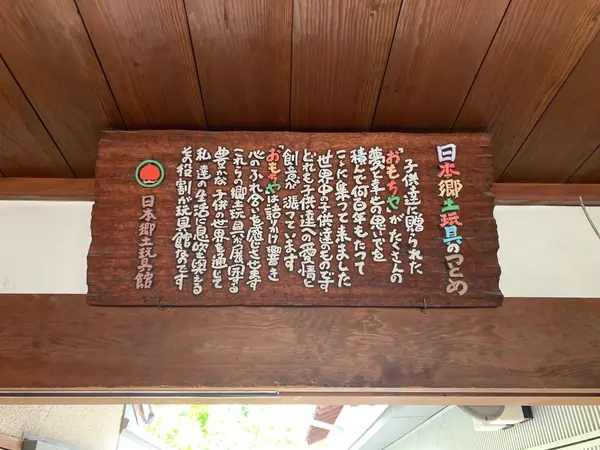 日本郷土玩具のつとめ
子供達に贈られた
“おもちゃ”がたくさんの
夢と幸せの思いでを
積んで何百年もたって
ここに集って来ました
世界中の子供達のものです
どれも子供達への愛情と
創意が漲っています
“おもちゃ”は語りかけ響き
心のふれ合いを感じさせます
これら郷玩具が展開する
豊かな子供の世界を通じて
私達の生活に息吹を与える
その役割が玩具館なのです
日本郷土玩具館